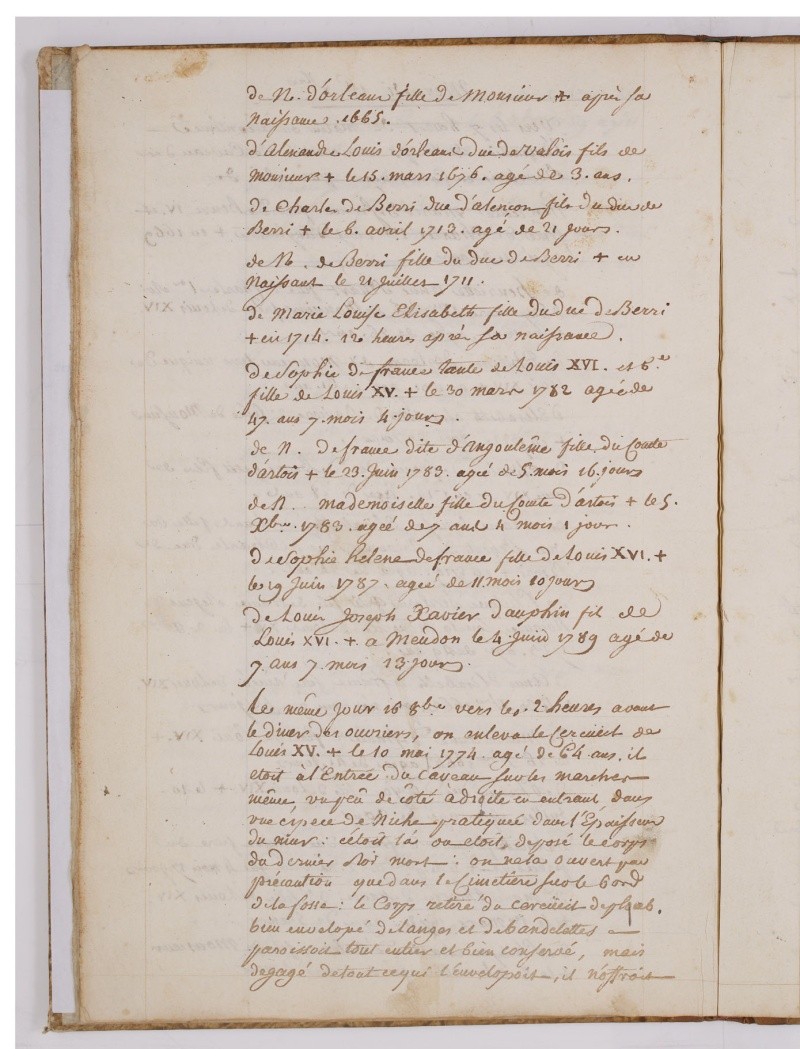 de N. d'orleans fille de Monsieur + après sa
naissance. 1665.
d'Alexandre Louis d'orleans duc de valois fils de
Monsieur + le 15. mars 1676. agé de 3. ans.
de Charles de Berri duc d'alençon fils du duc de
Berri + le 6. avril 1713. agé de 21 jours.
de N. de Berri fille du duc de Berri + en
naissant le 21 juillet 1711.
de Marie Louise Elisabeth fille du duc de Berri
+ en 1714. 12 heures après sa naissance.
de Sophie de france tante de Louis XVI. et 6.e
fille de Louis XV. + le 30 mars 1782 agée de
47. ans 7. mois 4. jours.
de N. de france dite d'Angoulême fille du Comte
d'artois + le 23. Juin 1783. agée de 5. mois 16. jours
de N. mademoiselle fille du Comte d'artois + le 5.
Xbre. 1783. agée de 7 ans 4 mois 1 jour.
de Sophie helene de france fille de Louis XVI. +
le 19 Juin 1787. agée de 11. mois 10 jours
de Louis Joseph Xavier Dauphin fil de
Louis XVI. + a Meudon le 4. Juin 1789 agé de
7 ans 7. mois 13 jours.
Le même jour 16 8bre vers les 2 heures avant
le diner des ouvriers, on enleva le Cercüeil de
Louis XV. + le 10 mai 1774. agé de 64 ans. il
etoit à l'Entrée du Caveau sur les marches
même, un peu de côté à droite en entrant, dans
une espece de Niche pratiquée dans l'Epaisseur
du mur: c'étoit là ou etoit déposé le corps
du dernier Roi mort: on ne la ouvert par
précaution que dans le Cimetière sur le bord
de la fosse: le Corps retiré du cercüeil de plomb,
bien envelopé de langes et de bandelettes
paroissoit tout entier et bien conservé, mais
degagé de tout ce qui l'envelopoit, il n'offroit